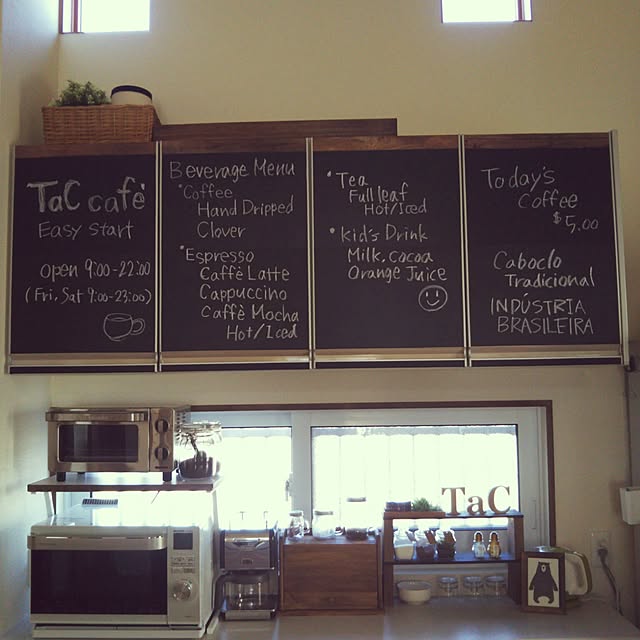 TaC café
Easy start
open 9:00-22:00
(Fri, Sat 9:00-23:00)
Beverage Menu
•Coffee
Hand Dripped
Clover
•Espresso
Caffè Latte
Cappuccino
Caffè Mocha
Hot/Iced
•Tea
Full leaf
Hot/Iced
•kid's Drink
Milk, cocoa
Orange Juice
Today's
Coffee
$5.00
Caboclo
Tradicional
INDÚSTRIA
BRASILEIRA
TaC